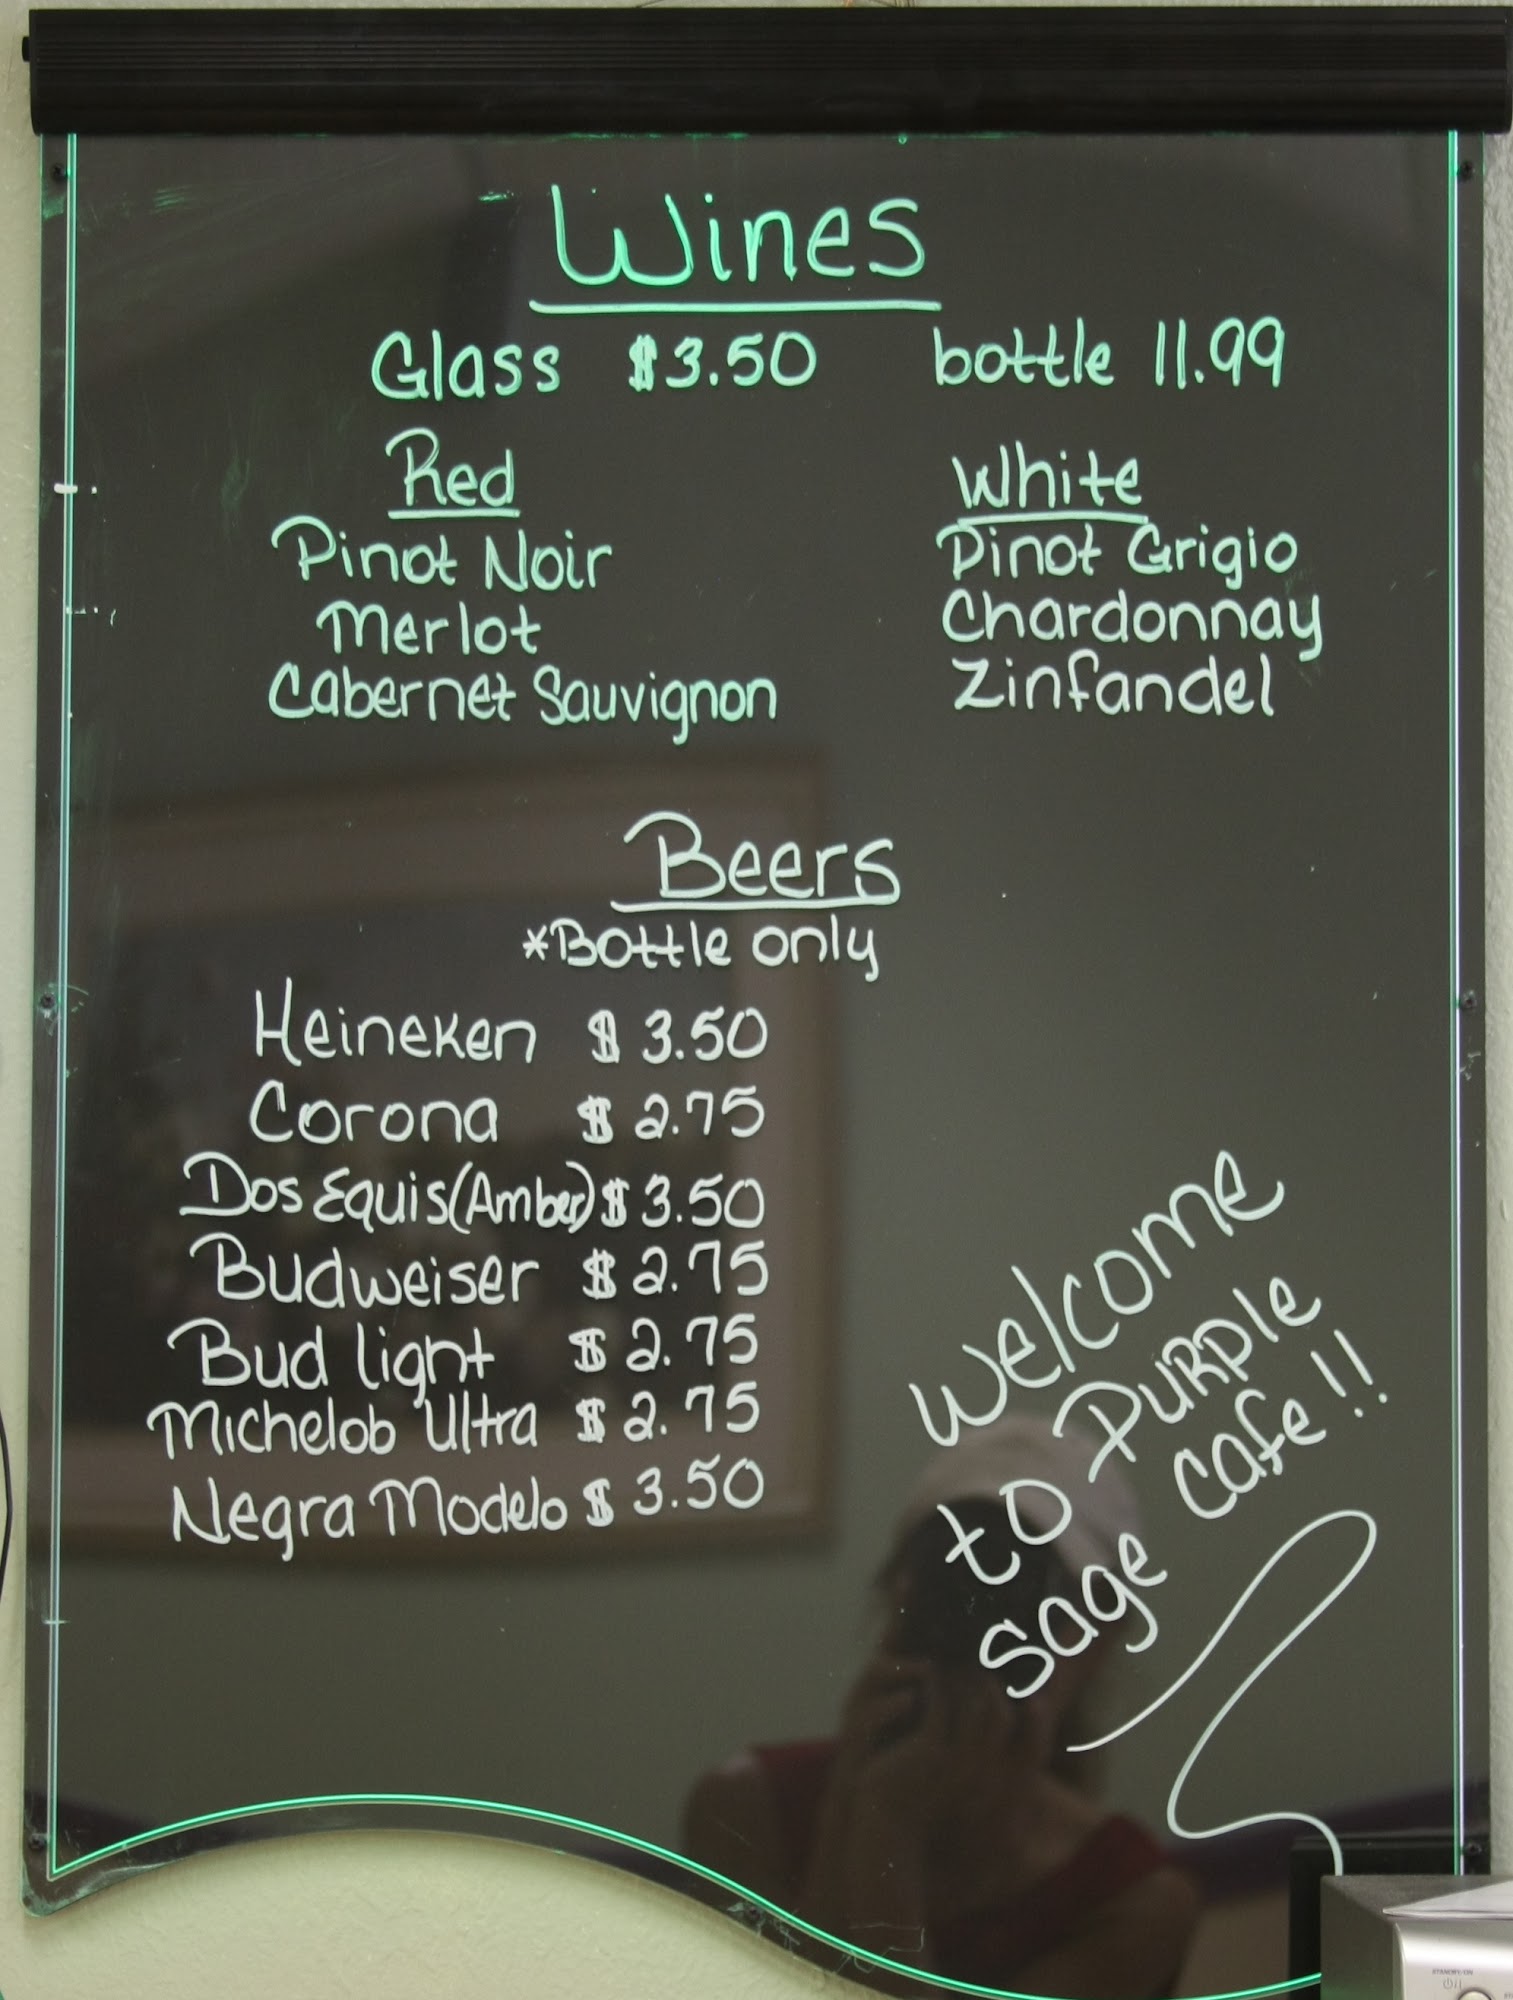 Wines
Glass $3.50 bottle 11.99
Red
Pinot Noir
Merlot
Cabernet Sauvignon
White
Pinot Grigio
Chardonnay
Zinfandel
Beers
*Bottle only
Heineken $3.50
Corona $2.75
Dos Equis(Amber) $3.50
Budweiser $2.75
Bud light $2.75
Michelob Ultra $2.75
Negra Modelo $3.50
Welcome
to Purple
sage cafe!!
STANDBY/ON